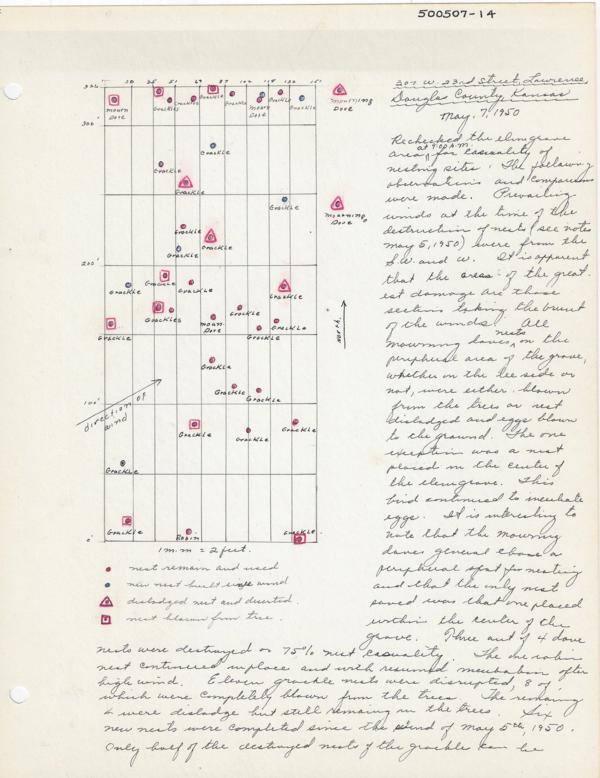 500507-14
307 W. 23rd Street, Lawrence,
Douglas County, Kansas
May, 7, 1950
Rechecked the elm grove
area at 7:00 A.M. for casuality of
nesting sites. The following
observations and comparisons
were made. Prevailing
winds at the time of the
destruction of nests (see notes
May 5, 1950) were from the
S.W. and W. It is apparent
that the areas of the great-
est damage are those
sections taking the brunt
of the winds. All
mourning doves nests on the
peripheral area of the grove,
whether on the lee side or
not, were either blown
from the trees or nest
dislodged and eggs blown
to the ground. The one
exception was a nest
placed in the center of
the elm grove. This
bird continued to incubate
eggs. It is interesting to
note that the mourning
doves general choose a
peripheral spot for nesting
and that the only nest
saved was that one placed
within the center of the
grove. Three out of 4 dove
nests were destroyed or 75% nest casuality. The one robin
nest continued in place and with resumed incubation after
high wind. Eleven grackle nests were disrupted, 8 of
which were completely blown from the trees. The remaining
4 were dislodge but still remaining in the trees. Six
new nests were completed since the wind of May 5th, 1950.
Only half of the destroyed nests of the grackle can be
17 50 51 69 87 102 119 151
Mourn Dove
Grackle
Grackles
Grackle
Grackle
Mourn Dove
Grackle
Grackle
Mourning Dove
300'
Grackle
Grackle
Grackle
Grackle
Mourning Dove
Grackle
Grackle
Grackle
200'
Grackle
Grackle
Grackle
Grackle
Grackle
Grackles
Mourn. Dove
Grackle
Grackle
Grackle
North
Grackle
Grackle
Grackle
100'
direction of wind
Grackle
Grackle
Grackle
Grackle
Grackle
Robin
Grackle
0'
1 m.m = 2 feet.
nest remain and used
new nest built since wind
dislodged nest and deserted.
nest blown from tree.